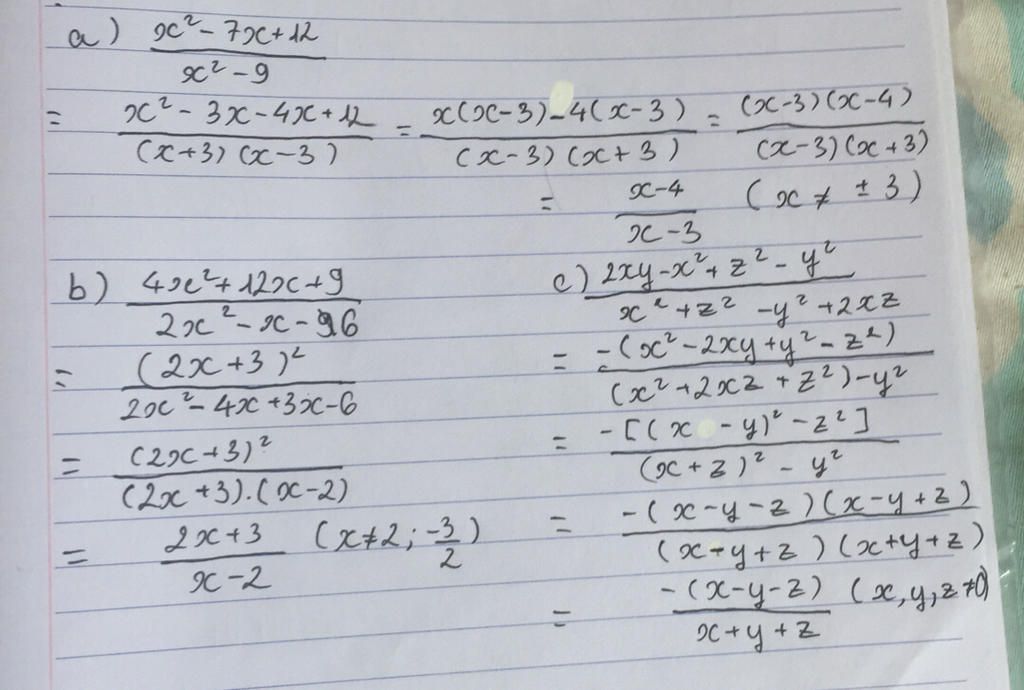 a) (x² - 7x + 12)/(x² - 9)
= (x² - 3x - 4x + 12)/((x+3)(x-3)) = (x(x-3) - 4(x-3))/((x-3)(x+3)) = ((x-3)(x-4))/((x-3)(x+3))
= (x-4)/(x-3) (x ≠ ± 3)
b) (4x² + 12x + 9)/(2x² - x - 6)
= (2x+3)²/(2x² - 4x + 3x - 6)
= (2x+3)²/((2x+3).(x-2))
= (2x+3)/(x-2) (x ≠ 2; -3/2)
c) (2xy - x² + z² - y²)/(x² + z² - y² + 2xz)
= -(x² - 2xy + y² - z²)/((x² + 2xz + z²) - y²)
= -[(x - y)² - z²]/((x+z)² - y²)
= -(x-y-z)(x-y+z)/((x-y+z)(x+y+z))
= -(x-y-z)/(x+y+z) (x,y,z ≠ 0)